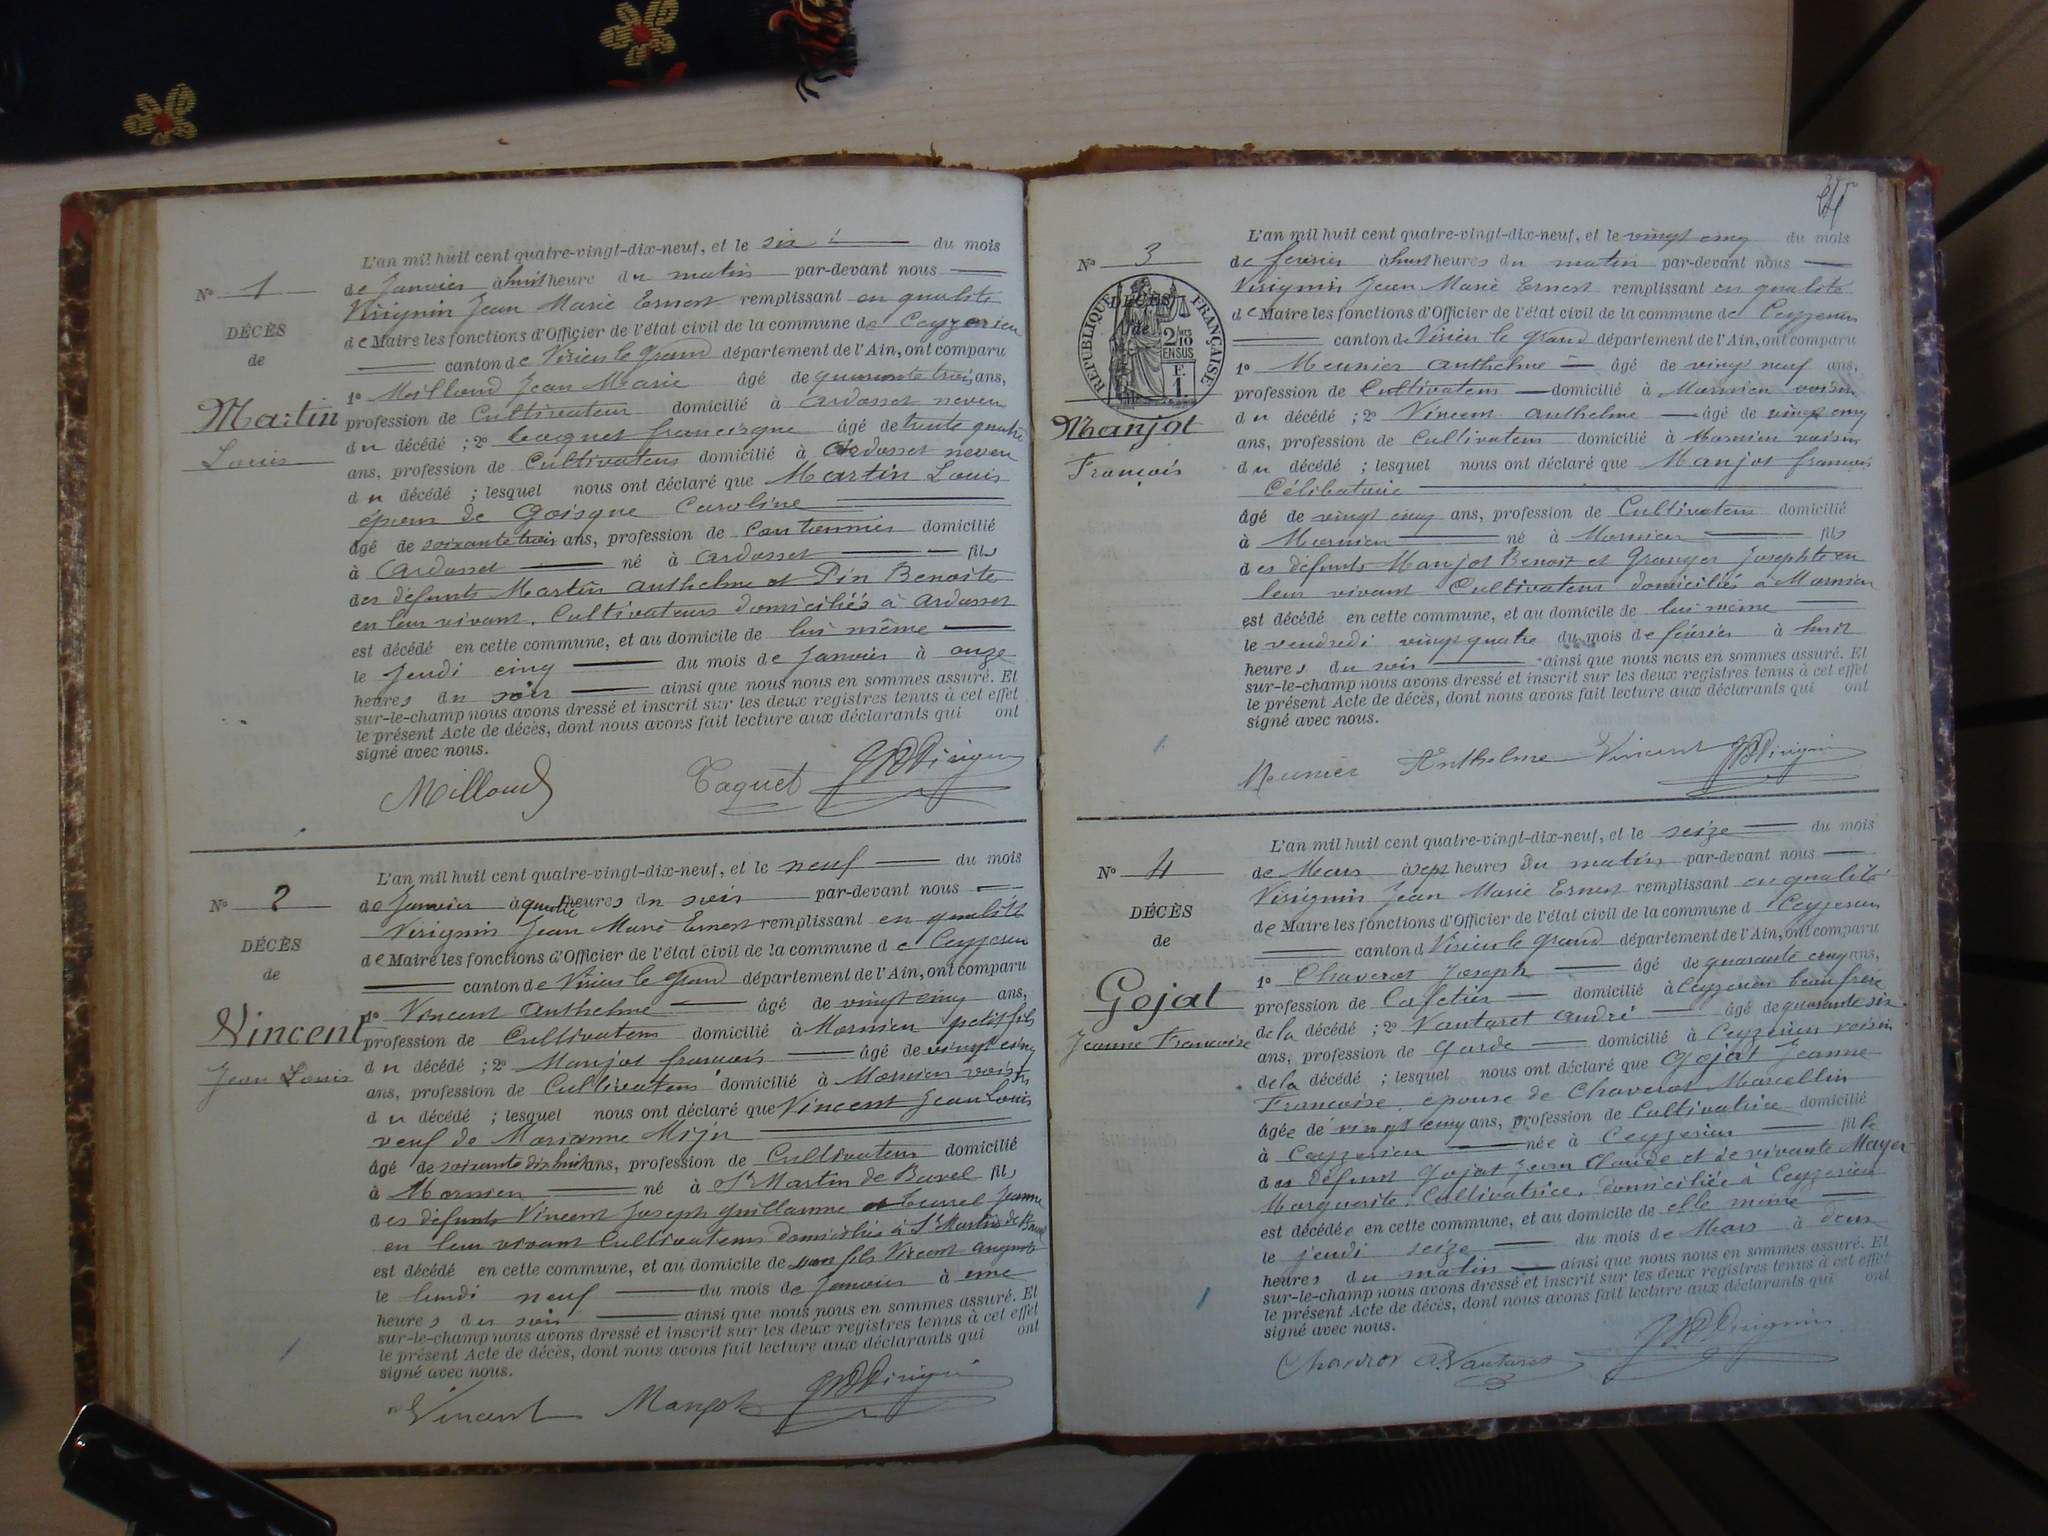 N° 1
DÉCÈS
de
Martin
Louis
L'an mil huit cent quatre-vingt-dix-neuf, et le six du mois
de Janvier à huit heure du matin par-devant nous
Virignin Jean Marie Ernest remplissant en qualité
de Maire les fonctions d'Officier de l'état civil de la commune de Ceyzerieu
canton de Virieu le Grand département de l'Ain, ont comparu
1° Milland Jean Marie âgé de quarante trois ans,
profession de Cultivateur domicilié à Ardosset neveu
du décédé ; 2° Taquet francisque âgé de trente quatre
ans, profession de Cultivateur domicilié à Ardosset neveu
du décédé ; lesquel nous ont déclaré que Martin Louis
époux de Goisque Caroline
âgé de soixante trois ans, profession de Cantonnier domicilié
à Ardosset né à Ardosset fils
des défunts Martin Anthelme et Pin Benoite
en leur vivant Cultivateurs domiciliés à Ardosset
est décédé en cette commune, et au domicile de lui même
le Jeudi cinq du mois de Janvier à onze
heures du soir ainsi que nous nous en sommes assuré. Et
sur-le-champ nous avons dressé et inscrit sur les deux registres tenus à cet effet
le présent Acte de décès, dont nous avons fait lecture aux déclarants qui ont
signé avec nous.
Milland Taquet Virignin
N° 2
DÉCÈS
de
Vincent
Jean Louis
L'an mil huit cent quatre-vingt-dix-neuf, et le neuf du mois
de Janvier à quatre heures du soir par-devant nous
Virignin Jean Marie Ernest remplissant en qualité
de Maire les fonctions d'Officier de l'état civil de la commune de Ceyzerieu
canton de Virieu le Grand département de l'Ain, ont comparu
1° Vincent Anthelme âgé de vingt cinq ans,
profession de Cultivateur domicilié à Marnieu petit fils
du décédé ; 2° Manjot francois âgé de vingt cinq
ans, profession de Cultivateur domicilié à Marnieu voisin
du décédé ; lesquel nous ont déclaré que Vincent Jean Louis
veuf de Marianne
âgé de soixante dix huit ans, profession de Cultivateur domicilié
à Marnieu né à St Martin de Bavel fils
des défunts Vincent Joseph Guillaume et Jeanne
en leur vivant Cultivateurs domiciliés à St Martin de Bavel
est décédé en cette commune, et au domicile de son fils Vincent Auguste
le lundi neuf du mois de Janvier à une
heures du soir ainsi que nous nous en sommes assuré. Et
sur-le-champ nous avons dressé et inscrit sur les deux registres tenus à cet effet
le présent Acte de décès, dont nous avons fait lecture aux déclarants qui ont
signé avec nous.
Vincent Manjot Virignin
N° 3
RÉPUBLIQUE FRANÇAISE
DÉCÈS
de
2/10
EN SUS
F.
1
Manjot
François
L'an mil huit cent quatre-vingt-dix-neuf, et le vingt cinq du mois
de fevrier à huit heures du matin par-devant nous
Virignin Jean Marie Ernest remplissant en qualité
de Maire les fonctions d'Officier de l'état civil de la commune de Ceyzerieu
canton de Virieu le Grand département de l'Ain, ont comparu
1° Meunier Anthelme âgé de vingt neuf ans,
profession de Cultivateur domicilié à Marnieu voisin
du décédé ; 2° Vincent Anthelme âgé de vingt cinq
ans, profession de Cultivateur domicilié à Marnieu voisin
du décédé ; lesquel nous ont déclaré que Manjot francois
Célibataire
âgé de vingt cinq ans, profession de Cultivateur domicilié
à Marnieu né à Marnieu fils
des défunts Manjot Benoit et Granger Josephte en
leur vivant Cultivateurs domiciliés à Marnieu
est décédé en cette commune, et au domicile de lui même
le vendredi vingt quatre du mois de février à huit
heures du soir ainsi que nous nous en sommes assuré. Et
sur-le-champ nous avons dressé et inscrit sur les deux registres tenus à cet effet
le présent Acte de décès, dont nous avons fait lecture aux déclarants qui ont
signé avec nous.
Meunier Anthelme Vincent Virignin
N° 4
DÉCÈS
de
Gojat
Jeanne Francoise
L'an mil huit cent quatre-vingt-dix-neuf, et le seize du mois
de Mars à sept heures du matin par-devant nous
Virignin Jean Marie Ernest remplissant en qualité
de Maire les fonctions d'Officier de l'état civil de la commune d Ceyzerieu
canton d Virieu le Grand département de l'Ain, ont comparu
1° Chaverot Joseph âgé de quarante cinq ans,
profession de Cafetier domicilié à Ceyzerieu beau frère
de la décédé ; 2° Vantaret André âgé de quarante six
ans, profession de Garde domicilié à Ceyzerieu voisin
de la décédé ; lesquel nous ont déclaré que Gojat Jeanne
Francoise épouse de Chaverot Marcellin
âgée de vingt cinq ans, profession de Cultivatrice domicilié
à Ceyzerieu née à Ceyzerieu fille
des défunt Gojat Jean Claude et de vivante Mayer
Marguerite, Cultivatrice, domiciliée à Ceyzerieu
est décédée en cette commune, et au domicile de elle même
le jeudi seize du mois de Mars à deux
heures du matin ainsi que nous nous en sommes assuré. Et
sur-le-champ nous avons dressé et inscrit sur les deux registres tenus à cet effet
le présent Acte de décès, dont nous avons fait lecture aux déclarants qui ont
signé avec nous.
Chaverot A. Vantaret Virignin